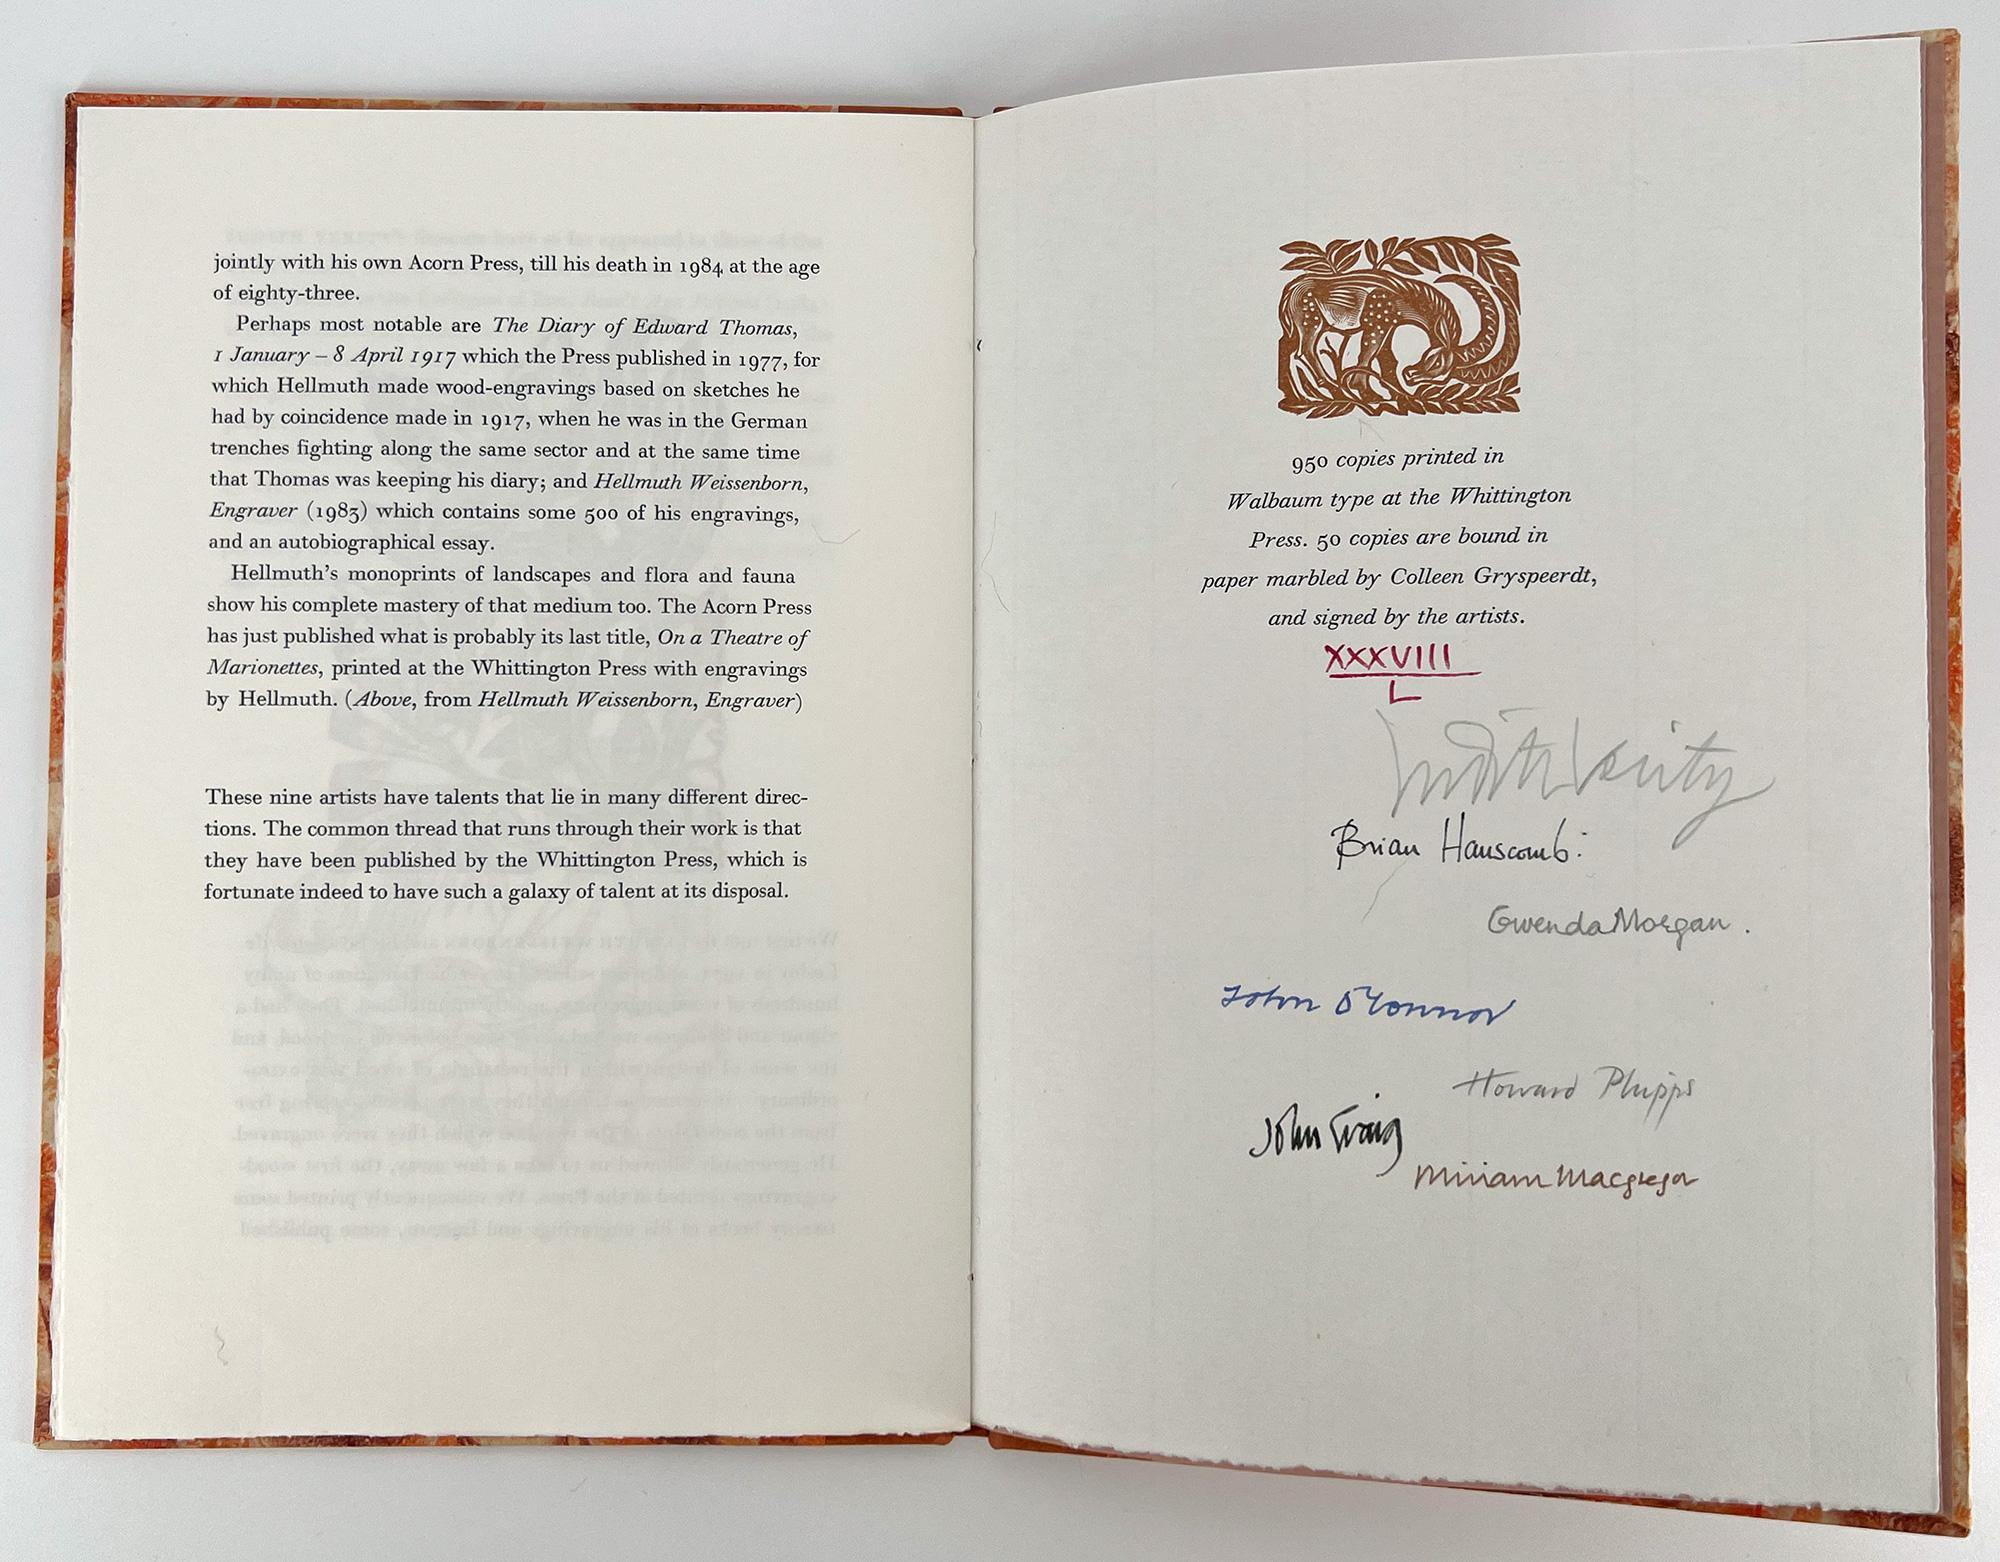 jointly with his own Acorn Press, till his death in 1984 at the age
of eighty-three.
Perhaps most notable are The Diary of Edward Thomas,
1 January – 8 April 1917 which the Press published in 1977, for
which Hellmuth made wood-engravings based on sketches he
had by coincidence made in 1917, when he was in the German
trenches fighting along the same sector and at the same time
that Thomas was keeping his diary; and Hellmuth Weissenborn,
Engraver (1983) which contains some 500 of his engravings,
and an autobiographical essay.
Hellmuth's monoprints of landscapes and flora and fauna
show his complete mastery of that medium too. The Acorn Press
has just published what is probably its last title, On a Theatre of
Marionettes, printed at the Whittington Press with engravings
by Hellmuth. (Above, from Hellmuth Weissenborn, Engraver)
These nine artists have talents that lie in many different direc-
tions. The common thread that runs through their work is that
they have been published by the Whittington Press, which is
fortunate indeed to have such a galaxy of talent at its disposal.
950 copies printed in
Walbaum type at the Whittington
Press. 50 copies are bound in
paper marbled by Colleen Gryspeerdt,
and signed by the artists.
XXXVIII
L
Judith Verity
Brian Hanscomb.
Gwenda Morgan.
John O'Connor
Howard Phipps
John Craig
Miriam Macgregor